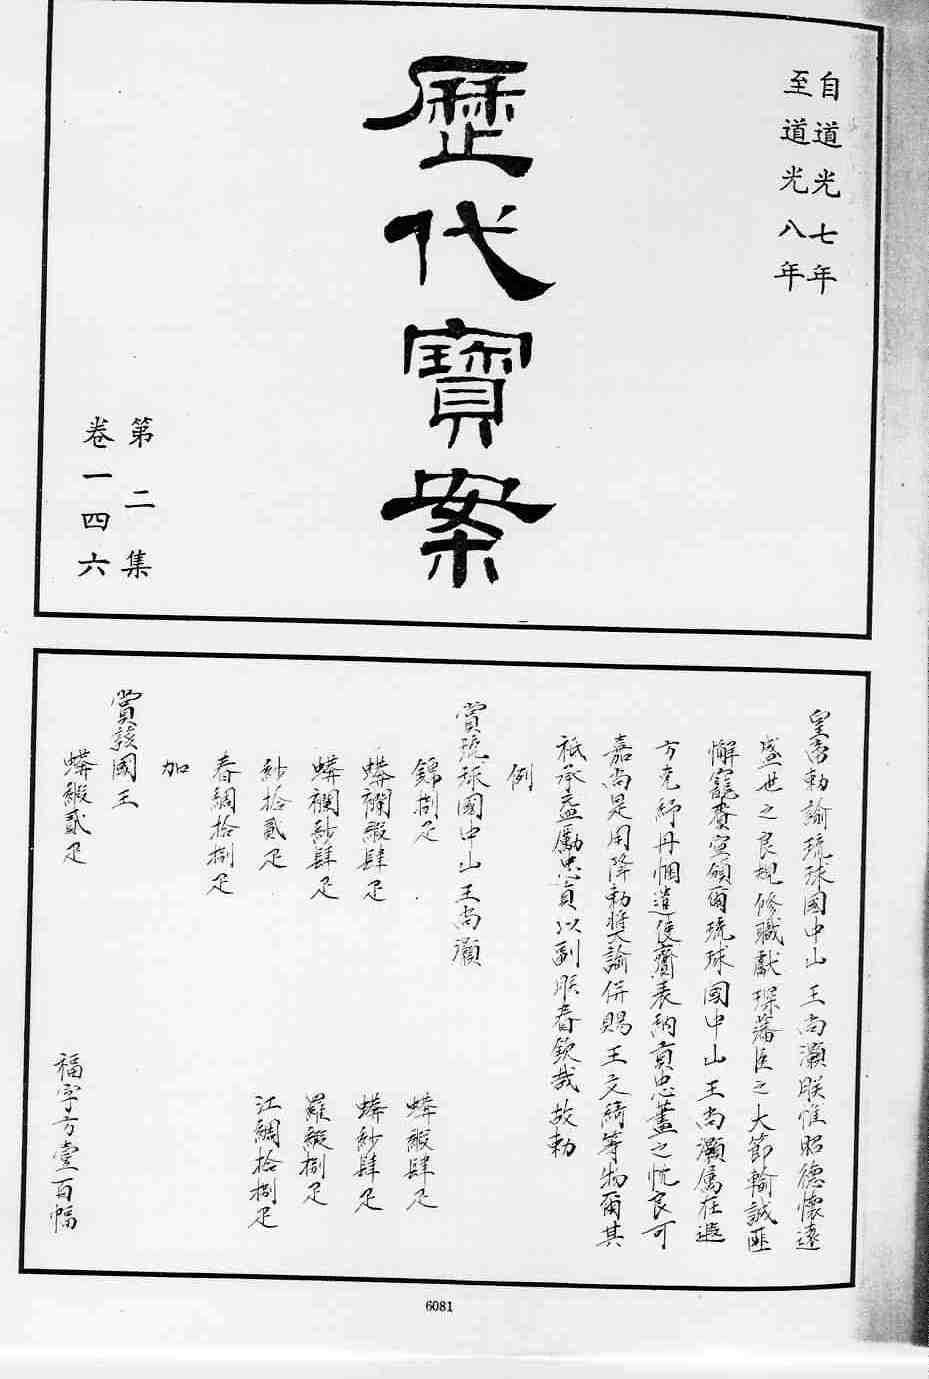 自道光七年
至道光八年
歷代寶案
第二集
卷一四六
皇帝勅諭琉球國中山王尚灝朕惟昭德懷遠
盛世之良規修職獻琛藩臣之大節輸誠匪
懈寵賚宜頒爾琉球國中山王尚灝属在遐
方克紓丹悃遣使齎表納貢忠藎之忱良可
嘉尚是用降勅獎諭併賜王文綺等物爾其
祇承益勵忠貞以副朕眷欽哉故勅
例
賞琉球國中山王尚灝
錦捌疋 蟒緞肆疋
蟒襴緞肆疋 蟒紗肆疋
蟒襴紗肆疋 羅緞捌疋
紗拾貳疋 江綢拾捌疋
春綢拾捌疋
加
賞該國王
蟒緞貳疋 福字方壹百幅
6081